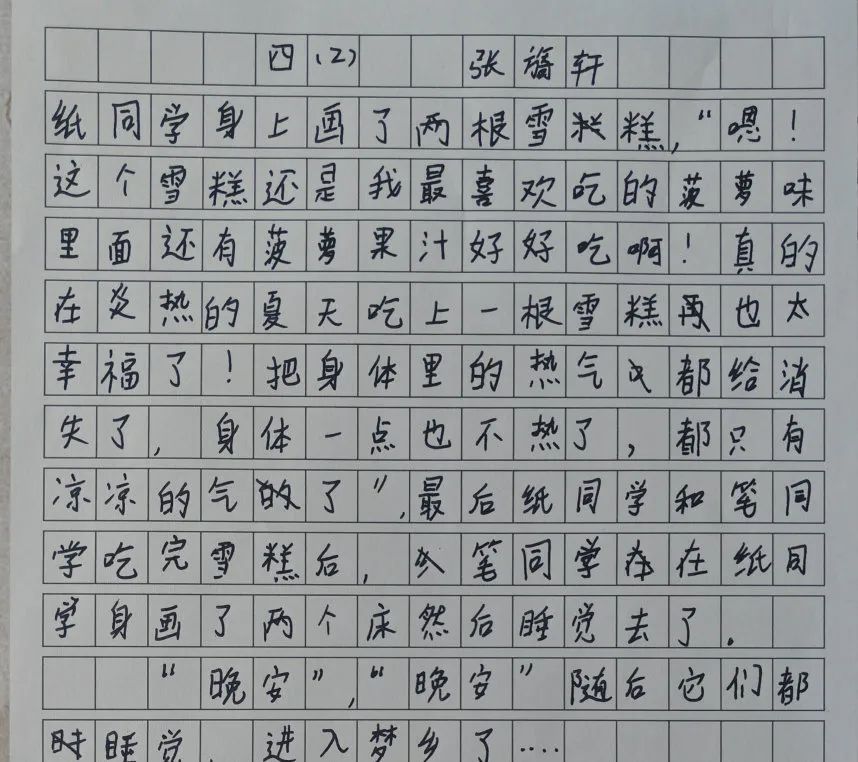 四(2) 张 轩
纸同学身上画了两根雪糕，“嗯！
这个雪糕还是我最喜欢吃的菠萝味
里面还有菠萝果汁好好吃啊！真的
在炎热的夏天吃上一根雪糕再也太
幸福了！把身体里的热气都给消
失了，身体一点也不热了，都只有
凉凉的气的了”，最后纸同学和笔同
学吃完雪糕后，笔同学在在纸同
学身画了两个床然后睡觉去了。
“晚安”，“晚安”随后它们都
时睡觉，进入梦乡了····